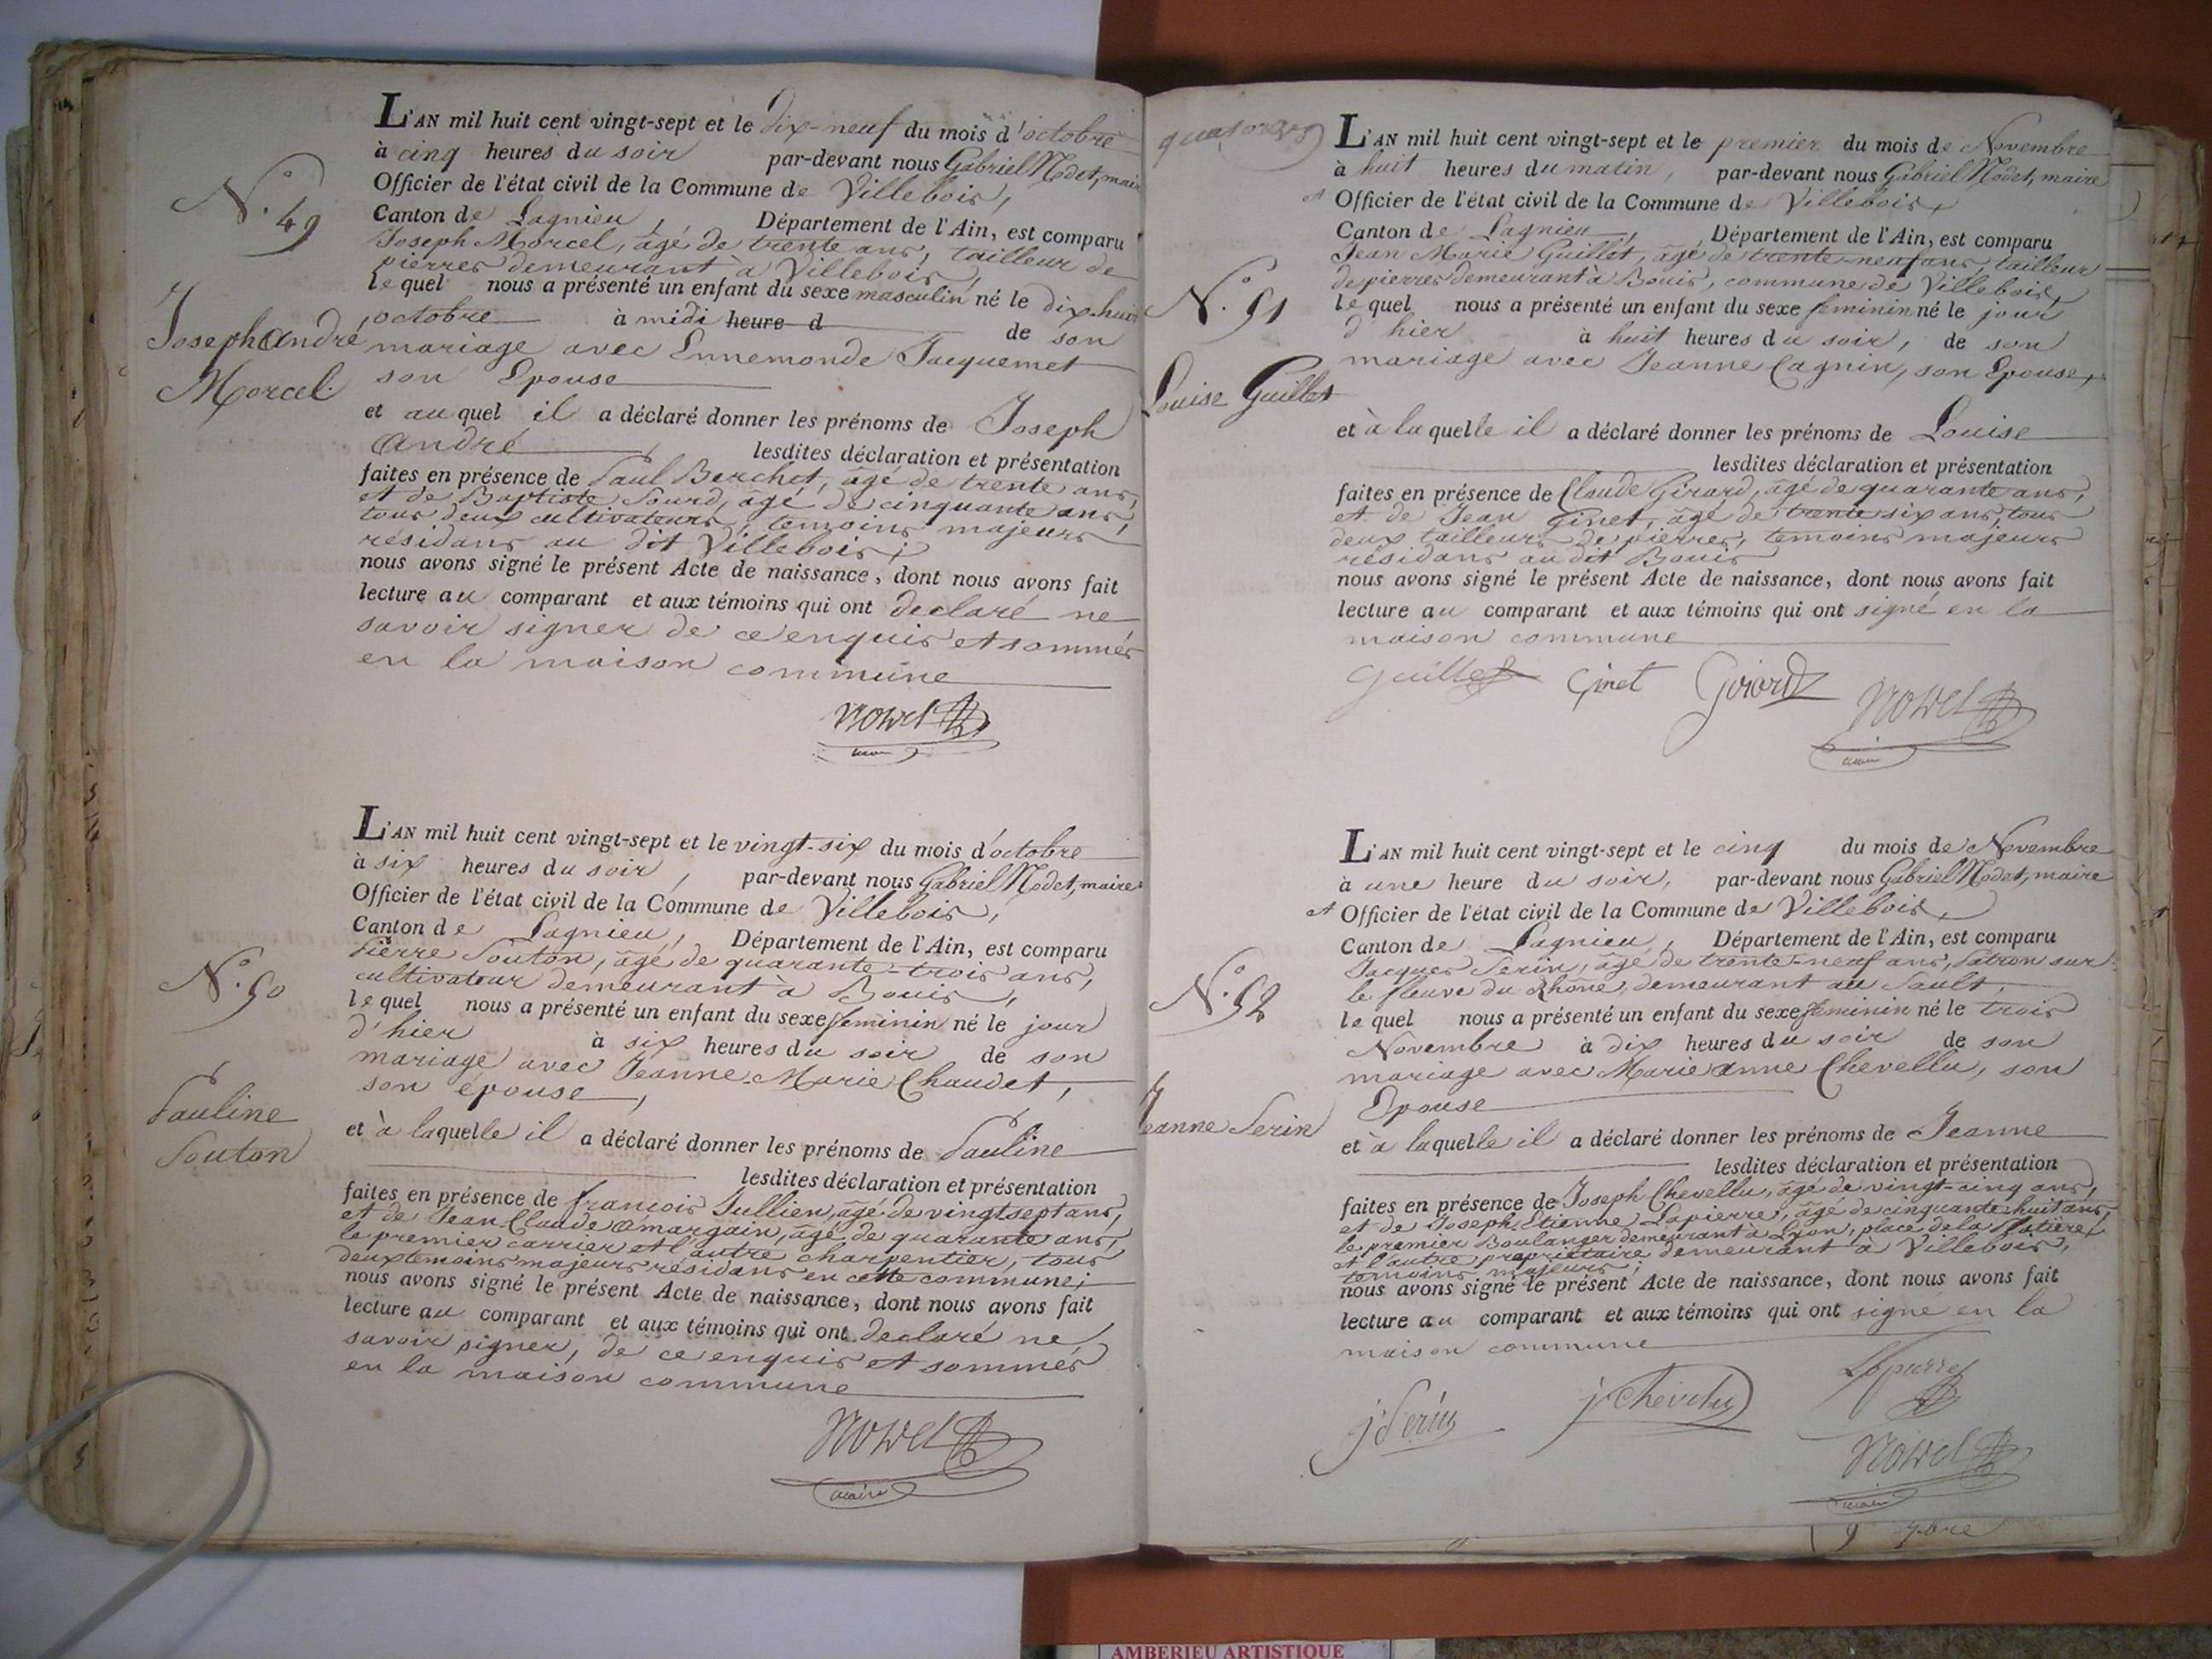 L'AN mil huit cent vingt-sept et le dix-neuf du mois d'octobre
à cinq heures du soir par-devant nous Gabriel Nodet, maire
Officier de l'état civil de la Commune de Villebois,
Canton de Lagnieu, Département de l'Ain, est comparu
Joseph Morcel, âgé de trente ans, tailleur de
pierres demeurant à Villebois,
lequel nous a présenté un enfant du sexe masculin né le dix-huit
octobre à midi heure d de son
mariage avec Ennemonde Jacquemet
son Epouse
et auquel il a déclaré donner les prénoms de Joseph
andré lesdites déclaration et présentation
faites en présence de Paul Berchet, âgé de trente ans,
et de Baptiste Sourd, âgé de cinquante ans,
tous deux cultivateurs, temoins majeurs
résidans au dit Villebois;
nous avons signé le présent Acte de naissance, dont nous avons fait
lecture au comparant et aux témoins qui ont declaré ne
savoir signer de ce enquis et sommés
en la maison commune
N.° 49
Joseph andré
Morcel.
L'AN mil huit cent vingt-sept et le vingt-six du mois d'octobre
à six heures du soir, par-devant nous Gabriel Nodet, maire
Officier de l'état civil de la Commune de Villebois,
Canton de Lagnieu, Département de l'Ain, est comparu
Pierre Souton, âgé de quarante-trois ans,
cultivateur demeurant à Bouis,
lequel nous a présenté un enfant du sexe feminin né le jour
d'hier à six heures du soir de son
mariage avec Jeanne-Marie Chaudet,
son épouse,
et à laquelle il a déclaré donner les prénoms de Pauline
lesdites déclaration et présentation
faites en présence de françois Jullien, âgé de vingt sept ans,
et de Jean-Claude amargain, âgé de quarante ans,
le premier carrier et l'autre charpentier, tous
deux temoins majeurs résidans en cette commune;
nous avons signé le présent Acte de naissance, dont nous avons fait
lecture au comparant et aux témoins qui ont declaré ne
savoir signer, de ce enquis et sommés
en la maison commune
maire
N.° 50
Pauline
Souton
quatorze
L'AN mil huit cent vingt-sept et le premier du mois de Novembre
à huit heures du matin, par-devant nous Gabriel Nodet, maire
et Officier de l'état civil de la Commune de Villebois,
Canton de Lagnieu, Département de l'Ain, est comparu
Jean Marie Guillet, âgé de trente-neuf ans, tailleur
de pierres demeurant à Bouis, commune de Villebois,
lequel nous a présenté un enfant du sexe feminin né le jour
d'hier à huit heures du soir, de son
mariage avec Jeanne Cagnin, son Epouse,
et à laquelle il a déclaré donner les prénoms de Louise
lesdites déclaration et présentation
faites en présence de Claude Girard, âgé de quarante ans,
et de Jean Ginet, âgé de trente six ans, tous
deux tailleurs de pierres, temoins majeurs
résidans au dit Bouis
nous avons signé le présent Acte de naissance, dont nous avons fait
lecture au comparant et aux témoins qui ont signé en la
maison commune
Guillet Ginet Girard
N.° 51
Louise Guillet
L'AN mil huit cent vingt-sept et le cinq du mois de Novembre
à une heure du soir, par-devant nous Gabriel Nodet, maire
et Officier de l'état civil de la Commune de Villebois,
Canton de Lagnieu, Département de l'Ain, est comparu
Jacques Serin, âgé de trente-neuf ans, Patron sur
le fleuve du Rhône, demeurant au Sault,
lequel nous a présenté un enfant du sexe feminin né le trois
Novembre à dix heures du soir de son
mariage avec Marie anne Chevellu, son
Epouse
et à laquelle il a déclaré donner les prénoms de Jeanne
lesdites déclaration et présentation
faites en présence de Joseph Chevellu, âgé de vingt-cinq ans,
et de Joseph Etienne Lapierre, âgé de cinquante-huit ans,
le premier Boulanger demeurant à Lyon, place de la Platière,
et l'autre propriétaire demeurant à Villebois,
temoins majeurs;
nous avons signé le présent Acte de naissance, dont nous avons fait
lecture au comparant et aux témoins qui ont signé en la
maison commune
j Serin j Chevelu Lapierre
N.° 52
Jeanne Serin
9 7bre
AMBERIEU ARTISTIQUE